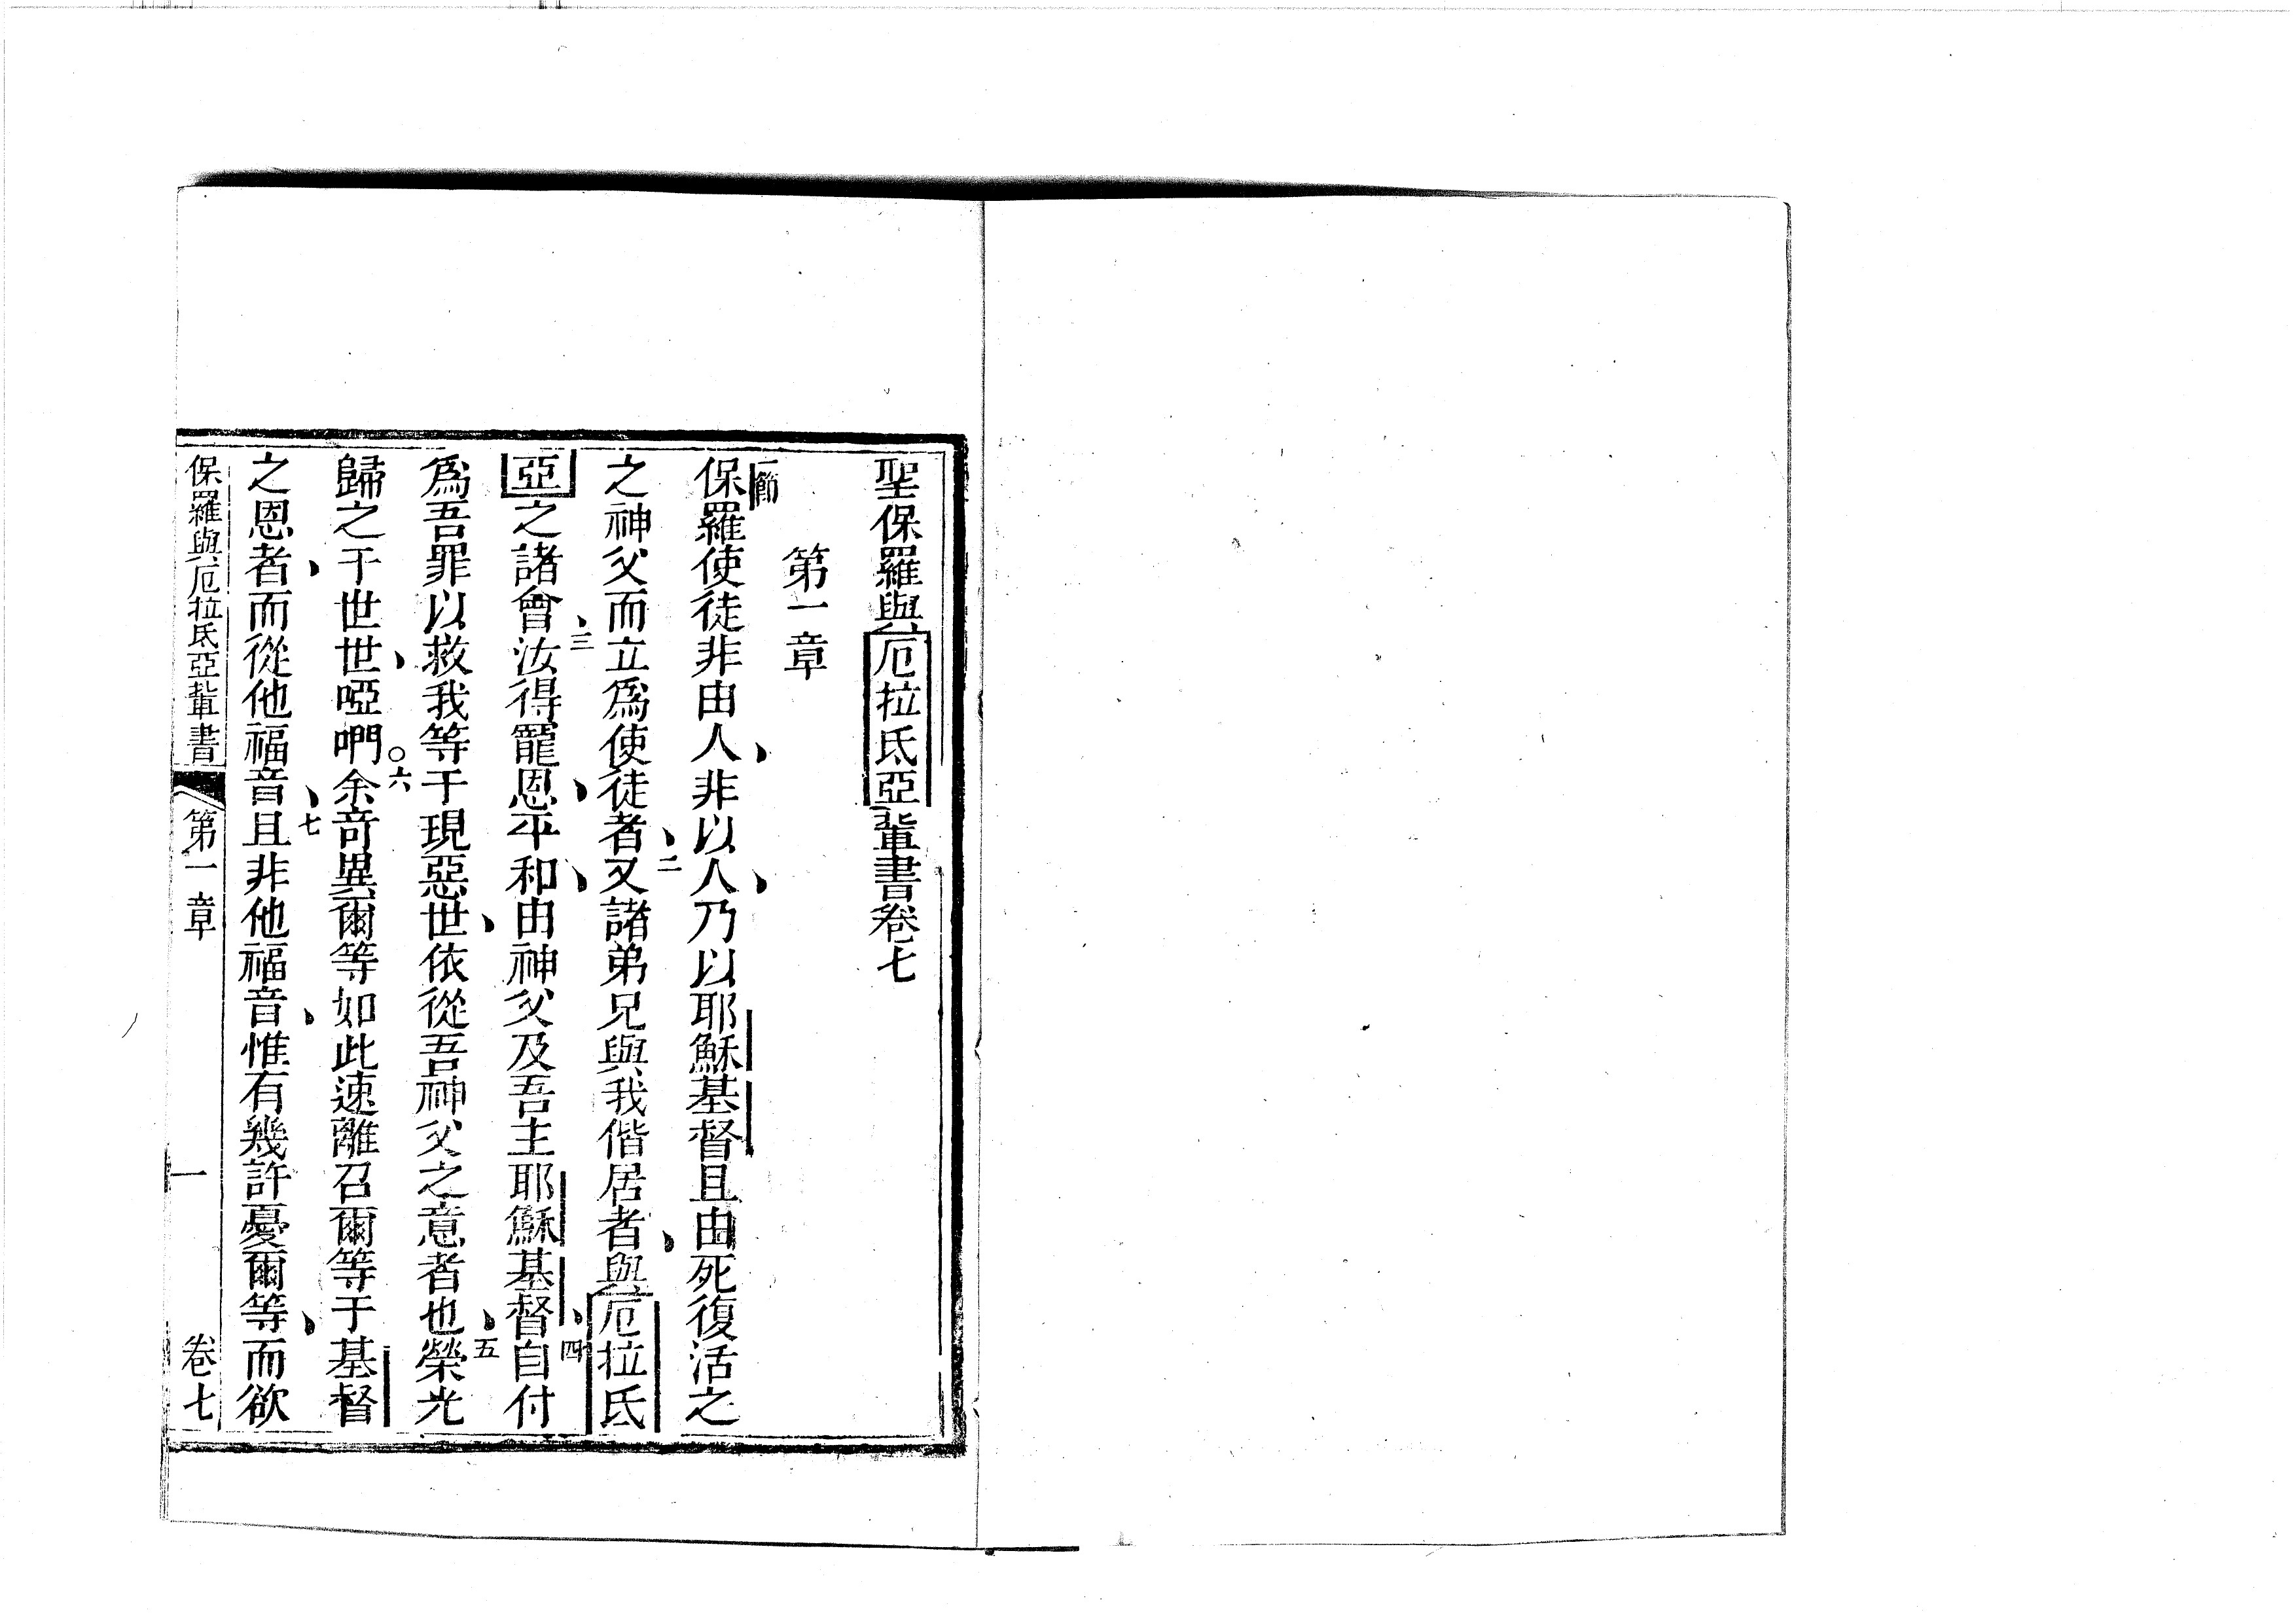 聖保羅與厄拉氐亞輩書卷七
第一章
一節
保羅使徒非由人、非以人、乃以耶穌基督且由死復活之
之神父而立爲使徒者、二又諸弟兄與我偕居者、與厄拉氐
亞之諸會、三汝得寵恩、平和、由神父及吾主耶穌基督、四自付
爲吾罪以救我等于現惡世、依從吾神父之意者也、五榮光
歸之于世世、啞㘓○六余竒異爾等如此速離召爾等于基督
之恩者、而從他福音、七且非他福音、惟有幾許憂爾等、而欲
保羅與厄拉氐亞輩書 第一章 一 卷七